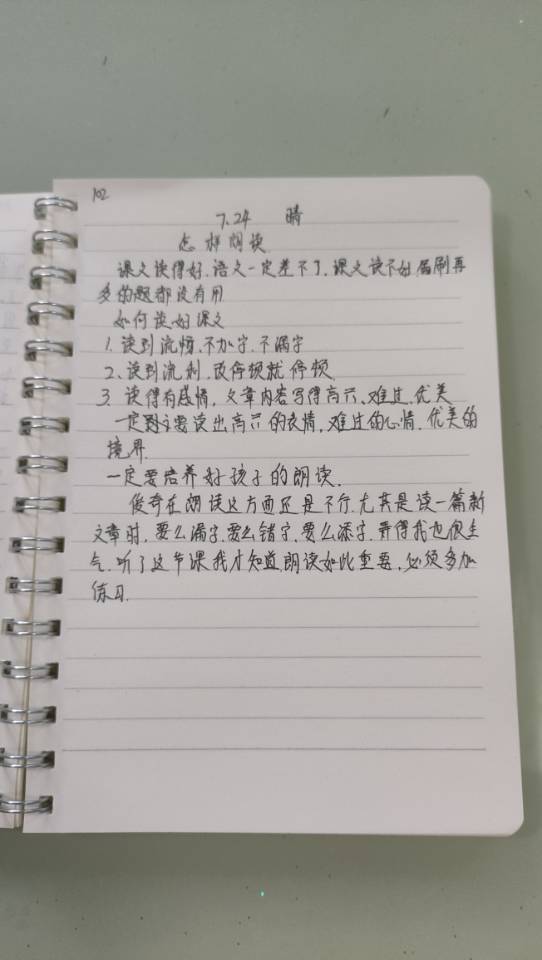 102
7.24 晴
怎样朗读
课文读得好.语文一定差不了.课文读不好.刷再
多的题都没有用
如何读好课文
1.读到流畅.不加字.不漏字
2、读到流利、改停顿就停顿
3.读得有感情,文章内容写得高兴、难过.优美
一定要读出高兴的表情,难过的心情.优美的
境界.
一定要培养好孩子的朗读.
俊奇在朗读这方面还是不行.尤其是读一篇新
文章时,要么漏字.要么错字.要么添字.弄得我也很生
气.听了这节课我才知道.朗读如此重要,必须多加
练习.